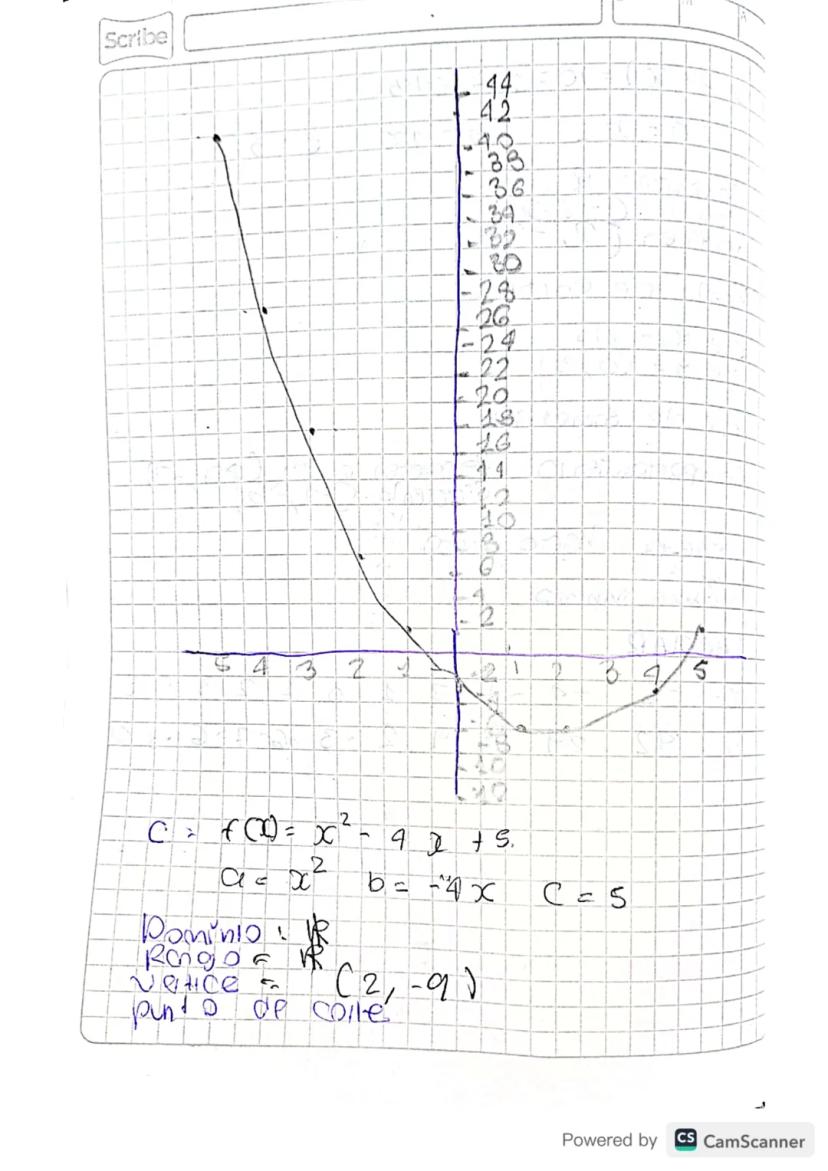 Scribe
44
42
40
38
36
34
32
30
28
26
24
22
20
18
16
14
12
10
8
6
4
2
5 4 3 2 1 -2 1 2 3 4 5
-8
-10
C = f(x) = x² - 4x + 5.
a = x² b = -4x C = 5
Dominio : ℝ
Rango = ℝ
vertice = (2, -9)
punto de corte
Powered by CS CamScanner